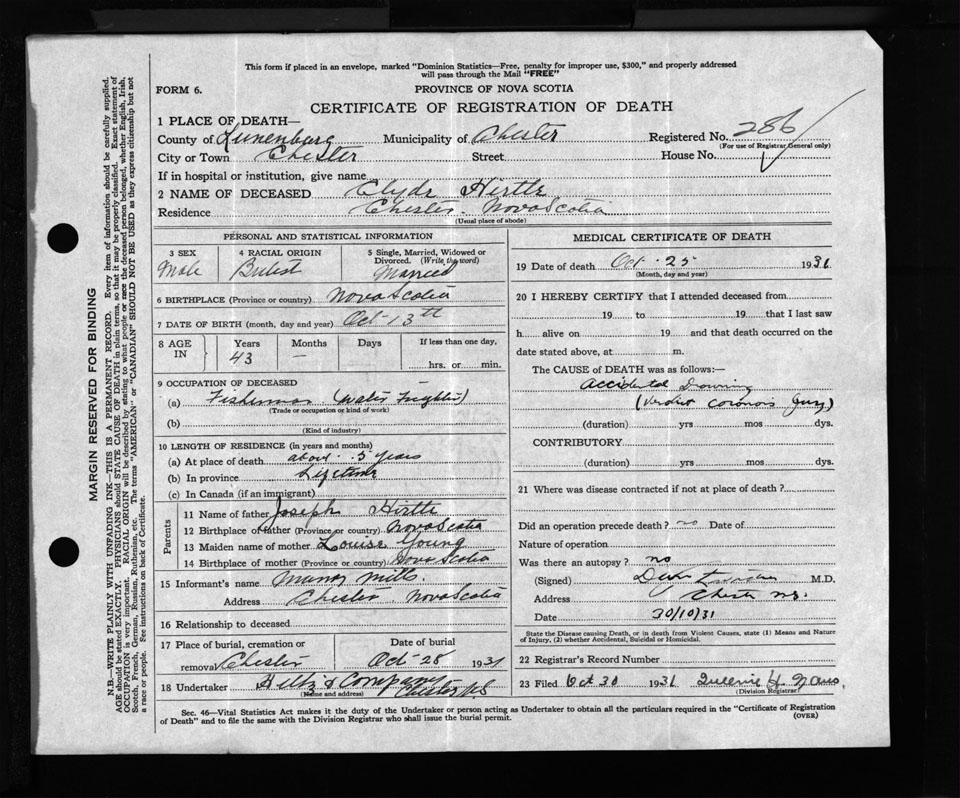 This form if placed in an envelope, marked "Dominion Statistics—Free, penalty for improper use, $300," and properly addressed
will pass through the Mail "FREE"
FORM 6.
PROVINCE OF NOVA SCOTIA
CERTIFICATE OF REGISTRATION OF DEATH
1 PLACE OF DEATH—
County of Lunenburg Municipality of Chester Registered No. 286
(For use of Registrar General only)
City or Town Chester Street House No.
If in hospital or institution, give name
2 NAME OF DECEASED Clyde Hirtle
Residence Chester Nova Scotia
(Usual place of abode)
PERSONAL AND STATISTICAL INFORMATION
3 SEX 4 RACIAL ORIGIN 5 Single, Married, Widowed or
Divorced. (Write the word)
Male Married
6 BIRTHPLACE (Province or country) Nova Scotia
7 DATE OF BIRTH (month, day and year) Oct 13th
8 AGE IN Years Months Days If less than one day,
43 — hrs. or min.
9 OCCUPATION OF DECEASED
(a) Fisherman
(Trade or occupation or kind of work)
(b)
(Kind of industry)
10 LENGTH OF RESIDENCE (in years and months)
(a) At place of death about 5 years
(b) In province Lifetime
(c) In Canada (if an immigrant)
Parents
11 Name of father Joseph Hirtle
12 Birthplace of father (Province or country) Nova Scotia
13 Maiden name of mother Louise Young
14 Birthplace of mother (Province or country) Nova Scotia
15 Informant's name Mills.
Address Chester Nova Scotia
16 Relationship to deceased
17 Place of burial, cremation or Date of burial
removal Chester Oct 28 1931
18 Undertaker & Company Chester NS
(Name and address)
MEDICAL CERTIFICATE OF DEATH
19 Date of death Oct. 25 1931
(Month, day and year)
20 I HEREBY CERTIFY that I attended deceased from
19 to 19 that I last saw
h alive on 19 and that death occurred on the
date stated above, at m.
The CAUSE of DEATH was as follows:—
accidental Drowning
(Verdict Coroner's Jury)
(duration) yrs mos dys.
CONTRIBUTORY
(duration) yrs mos dys.
21 Where was disease contracted if not at place of death?
Did an operation precede death? no Date of
Nature of operation
Was there an autopsy? no
(Signed) M.D.
Address Chester N.S.
Date 30/10/31
State the Disease causing Death, or in death from Violent Causes, state (1) Means and Nature
of Injury, (2) whether Accidental, Suicidal or Homicidal.
22 Registrar's Record Number
23 Filed Oct 30 1931
(Division Registrar)
Sec. 46—Vital Statistics Act makes it the duty of the Undertaker or person acting as Undertaker to obtain all the particulars required in the "Certificate of Registration
of Death" and to file the same with the Division Registrar who shall issue the burial permit.
(OVER)
MARGIN RESERVED FOR BINDING
N.B.—WRITE PLAINLY WITH UNFADING INK—THIS IS A PERMANENT RECORD. Every item of information should be carefully supplied.
AGE should be stated EXACTLY. PHYSICIANS should STATE CAUSE OF DEATH in plain terms, so that it may be properly classified. Exact statement of
OCCUPATION is very important. RACIAL ORIGIN will be described by stating to what people or race the deceased person belonged, whether English, Irish,
Scotch, French, German, Russian, Ruthenian, etc. The terms "AMERICAN" or "CANADIAN" SHOULD NOT BE USED as they express citizenship but not
a race or people. See instructions on back of Certificate.